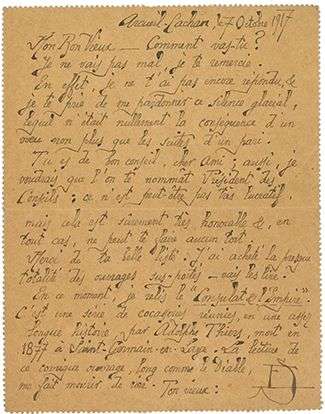 Arcueil-Cachan, le 7 Octobre 1917
Mon Bon Vieux — Comment vas-tu ?
Je ne vais pas mal, je te remercie.
En effet, je ne t'ai pas encore répondu, &
je te prie de me pardonner ce silence glacial,
lequel n'était nullement la conséquence d'un
vœu non plus que les suites d'un pari.
Tu es de bon conseil, cher Ami ; aussi, je
voudrais que l'on te nommât Président des
Conseils : ce n'est peut-être pas très lucratif,
mais cela est sûrement très honorable &, en
tout cas, ne peut te faire aucun tort.
Merci de la belle liste : j'ai acheté la presque
totalité des ouvrages sus-notés — vais les lire.
En ce moment, je relis le "Consulat & l'Empire" :
C'est une série de cocasseries réunies en une assez
longue histoire par Adolphe Thiers, mort en
1877 à Saint-Germain-en-Laye. La lecture de
ce comique ouvrage, long comme le Diable,
me fait mourir de rire. Ton vieux :